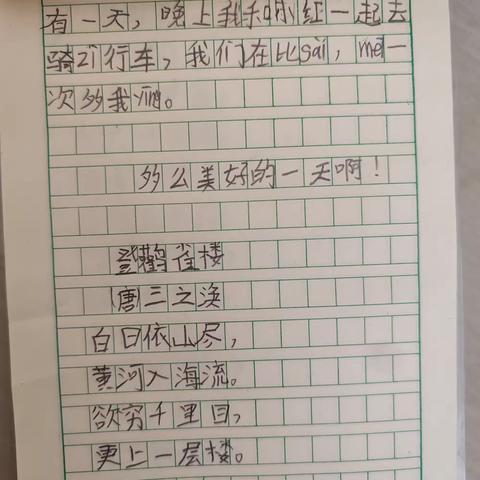 有一天，晚上我和小红一起去
骑zi行车，我们在比sài，měi一
次多我yíng。
多么美好的一天啊！
登鹳雀楼
唐三之涣
白日依山尽，
黄河入海流。
欲穷千里目，
更上一层楼。